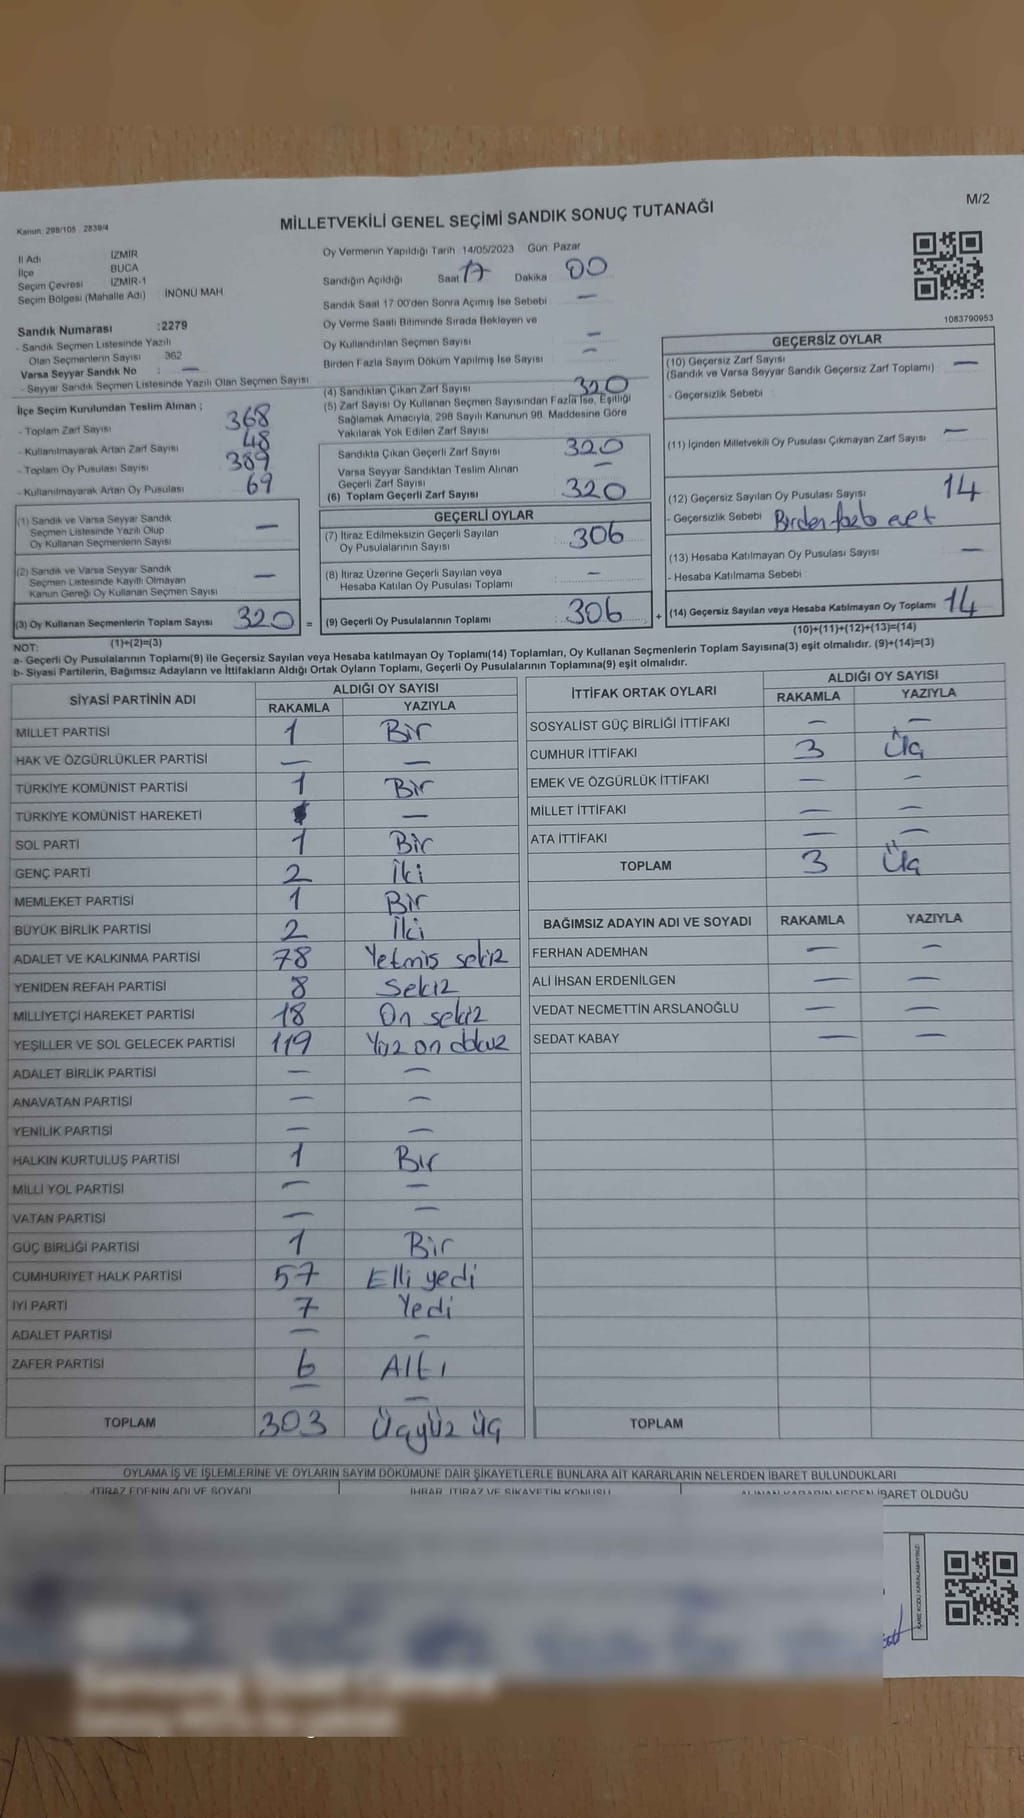 M/2
Kanun: 298/105 . 2839/4
MİLLETVEKİLİ GENEL SEÇİMİ SANDIK SONUÇ TUTANAĞI
İl Adı İZMİR
İlçe BUCA
Seçim Çevresi İZMİR-1
Seçim Bölgesi (Mahalle Adı) İNÖNÜ MAH.
Sandık Numarası :2279
- Sandık Seçmen Listesinde Yazılı
Olan Seçmenlerin Sayısı 362
Varsa Seyyar Sandık No : —
- Seyyar Sandık Seçmen Listesinde Yazılı Olan Seçmen Sayısı
İlçe Seçim Kurulundan Teslim Alınan ;
- Toplam Zarf Sayısı 368
- Kullanılmayarak Artan Zarf Sayısı 48
- Toplam Oy Pusulası Sayısı 389
- Kullanılmayarak Artan Oy Pusulası 69
(1) Sandık ve Varsa Seyyar Sandık
Seçmen Listesinde Yazılı Olup
Oy Kullanan Seçmenlerin Sayısı —
(2) Sandık ve Varsa Seyyar Sandık
Seçmen Listesinde Kayıtlı Olmayan
Kanun Gereği Oy Kullanan Seçmen Sayısı —
(3) Oy Kullanan Seçmenlerin Toplam Sayısı 320 =
(1)+(2)=(3)
Oy Vermenin Yapıldığı Tarih :14/05/2023 Gün: Pazar
Sandığın Açıldığı Saat 17 Dakika 00
Sandık Saat 17:00'den Sonra Açımış İse Sebebi —
Oy Verme Saati Bitiminde Sırada Bekleyen ve
Oy Kullandırılan Seçmen Sayısı —
Birden Fazla Sayım Döküm Yapılmış İse Sayısı —
(4) Sandıktan Çıkan Zarf Sayısı 320
(5) Zarf Sayısı Oy Kullanan Seçmen Sayısından Fazla İse, Eşitliği
Sağlamak Amacıyla, 298 Sayılı Kanunun 98. Maddesine Göre
Yakılarak Yok Edilen Zarf Sayısı
Sandıkta Çıkan Geçerli Zarf Sayısı 320
Varsa Seyyar Sandıktan Teslim Alınan
Geçerli Zarf Sayısı —
(6) Toplam Geçerli Zarf Sayısı 320
GEÇERLİ OYLAR
(7) İtiraz Edilmeksizin Geçerli Sayılan
Oy Pusulalarının Sayısı : 306
(8) İtiraz Üzerine Geçerli Sayılan veya
Hesaba Katılan Oy Pusulası Toplamı : —
(9) Geçerli Oy Pusulalarının Toplamı : 306 +
1083790953
GEÇERSİZ OYLAR
(10) Geçersiz Zarf Sayısı
(Sandık ve Varsa Seyyar Sandık Geçersiz Zarf Toplamı) —
- Geçersizlik Sebebi
(11) İçinden Milletvekili Oy Pusulası Çıkmayan Zarf Sayısı —
(12) Geçersiz Sayılan Oy Pusulası Sayısı 14
- Geçersizlik Sebebi Birden fazla evet
(13) Hesaba Katılmayan Oy Pusulası Sayısı —
- Hesaba Katılmama Sebebi :
(14) Geçersiz Sayılan veya Hesaba Katılmayan Oy Toplamı 14
(10)+(11)+(12)+(13)=(14)
NOT:
a- Geçerli Oy Pusulalarının Toplamı(9) ile Geçersiz Sayılan veya Hesaba katılmayan Oy Toplamı(14) Toplamları, Oy Kullanan Seçmenlerin Toplam Sayısına(3) eşit olmalıdır. (9)+(14)=(3)
b- Siyasi Partilerin, Bağımsız Adayların ve İttifakların Aldığı Ortak Oyların Toplamı, Geçerli Oy Pusulalarının Toplamına(9) eşit olmalıdır.
SİYASİ PARTİNİN ADI ALDIĞI OY SAYISI
RAKAMLA YAZIYLA
MİLLET PARTİSİ 1 Bir
HAK VE ÖZGÜRLÜKLER PARTİSİ — —
TÜRKİYE KOMÜNİST PARTİSİ 1 Bir
TÜRKİYE KOMÜNİST HAREKETİ —
SOL PARTİ 1 Bir
GENÇ PARTİ 2 İki
MEMLEKET PARTİSİ 1 Bir
BÜYÜK BİRLİK PARTİSİ 2 İki
ADALET VE KALKINMA PARTİSİ 78 Yetmiş sekiz
YENİDEN REFAH PARTİSİ 8 Sekiz
MİLLİYETÇİ HAREKET PARTİSİ 18 On sekiz
YEŞİLLER VE SOL GELECEK PARTİSİ 119 Yüz on dokuz
ADALET BİRLİK PARTİSİ — —
ANAVATAN PARTİSİ — —
YENİLİK PARTİSİ — —
HALKIN KURTULUŞ PARTİSİ 1 Bir
MİLLİ YOL PARTİSİ — —
VATAN PARTİSİ — —
GÜÇ BİRLİĞİ PARTİSİ 1 Bir
CUMHURİYET HALK PARTİSİ 57 Elli yedi
İYİ PARTİ 7 Yedi
ADALET PARTİSİ — —
ZAFER PARTİSİ 6 Altı
— —
TOPLAM 303 Üçyüz üç
İTTİFAK ORTAK OYLARI ALDIĞI OY SAYISI
RAKAMLA YAZIYLA
SOSYALİST GÜÇ BİRLİĞİ İTTİFAKI — —
CUMHUR İTTİFAKI 3 Üç
EMEK VE ÖZGÜRLÜK İTTİFAKI — —
MİLLET İTTİFAKI — —
ATA İTTİFAKI — —
TOPLAM 3 Üç
BAĞIMSIZ ADAYIN ADI VE SOYADI RAKAMLA YAZIYLA
FERHAN ADEMHAN — —
ALİ İHSAN ERDENİLGEN — —
VEDAT NECMETTİN ARSLANOĞLU — —
SEDAT KABAY — —
TOPLAM
OYLAMA İŞ VE İŞLEMLERİNE VE OYLARIN SAYIM DÖKÜMÜNE DAİR ŞİKAYETLERLE BUNLARA AİT KARARLARIN NELERDEN İBARET BULUNDUKLARI
İTİRAZ EDENİN ADI VE SOYADI İHBAR, İTİRAZ VE ŞİKAYETİN KONUSU ALINAN KARARIN NEDEN İBARET OLDUĞU